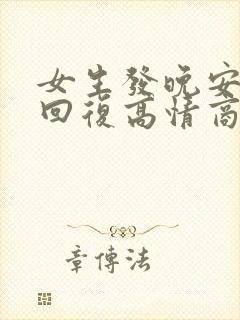 女生發晚安
回復高情商
章傳法